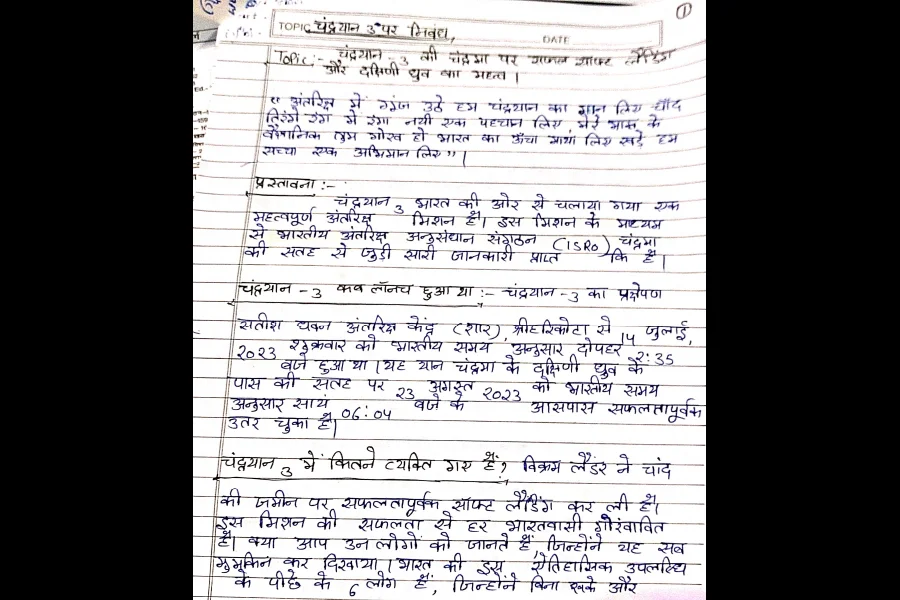 ①
TOPIC चंद्रयान 3 पर निबंध,
DATE
Topic:- चंद्रयान -3 की चंद्रमा पर सफल साफ्ट लैंडिंग
और दक्षिणी ध्रुव का महत्व ।
" अंतरिक्ष में गूंज उठे हम चंद्रयान का मान लिए चाँद
तिरंगे रंग में रंगा नयी एक पहचान लिए, मेरे भारत के
वैज्ञानिक तुम गौरव हो भारत का ऊँचा माथा लिए खड़े हम
सच्चा एक अभिमान लिए" ।
प्रस्तावना :-
चंद्रयान 3 भारत की ओर से चलाया गया एक
महत्वपूर्ण अंतरिक्ष मिशन है। इस मिशन के माध्यम
से भारतीय अंतरिक्ष अनुसंधान संगठन (ISRO) चंद्रमा
की सतह से जुड़ी सारी जानकारी प्राप्त कि है।
चंद्रयान -3 कब लॉनच हुआ था :- चंद्रयान -3 का प्रक्षेपण
सतीश धवन अंतरिक्ष केंद्र (शार), श्रीहरिकोटा से 14 जुलाई,
2023 शुक्रवार को भारतीय समय अनुसार दोपहर 2:35
बजे हुआ था। यह यान चंद्रमा के दक्षिणी ध्रुव के
पास की सतह पर 23 अगस्त 2023 को भारतीय समय
अनुसार सायं 06:04 बजे के आसपास सफलतापूर्वक
उतर चुका है।
चंद्रयान 3 में कितने व्यक्ति गए हैं? विक्रम लैंडर ने चांद
की जमीन पर सफलतापूर्वक सॉफ्ट लैंडिंग कर ली है।
इस मिशन की सफलता से हर भारतवासी गौरंवावित
है। क्या आप उन लोगों को जानते हैं, जिन्होंने यह सब
मुमकिन कर दिखाया। भारत की इस ऐतिहासिक उपलब्धि
के पीछे के 6 लोग हैं, जिन्होंने बिना रुके और